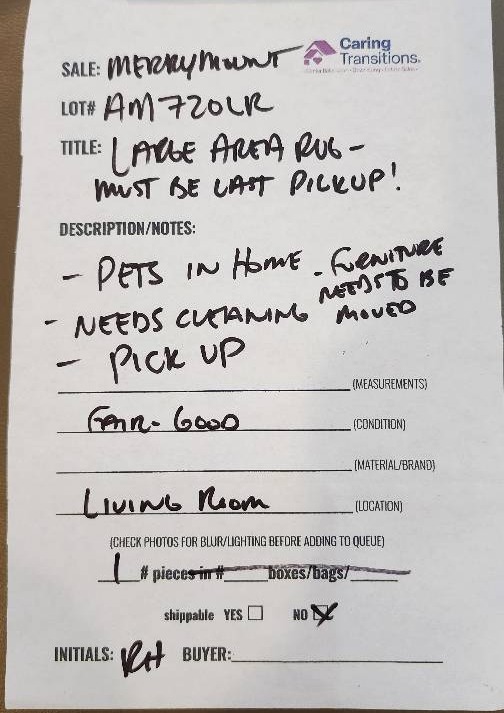 Caring
Transitions.
SALE: MERRYMOUNT
LOT# AM720LR
TITLE: LARGE AREA RUG -
MUST BE LAST PICKUP!
DESCRIPTION/NOTES:
- PETS IN HOME - FURNITURE
NEEDS TO BE
MOVED
- NEEDS CLEANING
- PICK UP
(MEASUREMENTS)
FAIR - GOOD (CONDITION)
(MATERIAL/BRAND)
LIVING ROOM (LOCATION)
(CHECK PHOTOS FOR BLUR/LIGHTING BEFORE ADDING TO QUEUE)
1 # pieces in # boxes/bags/
shippable YES ☐ NO ☒
INITIALS: RH BUYER: